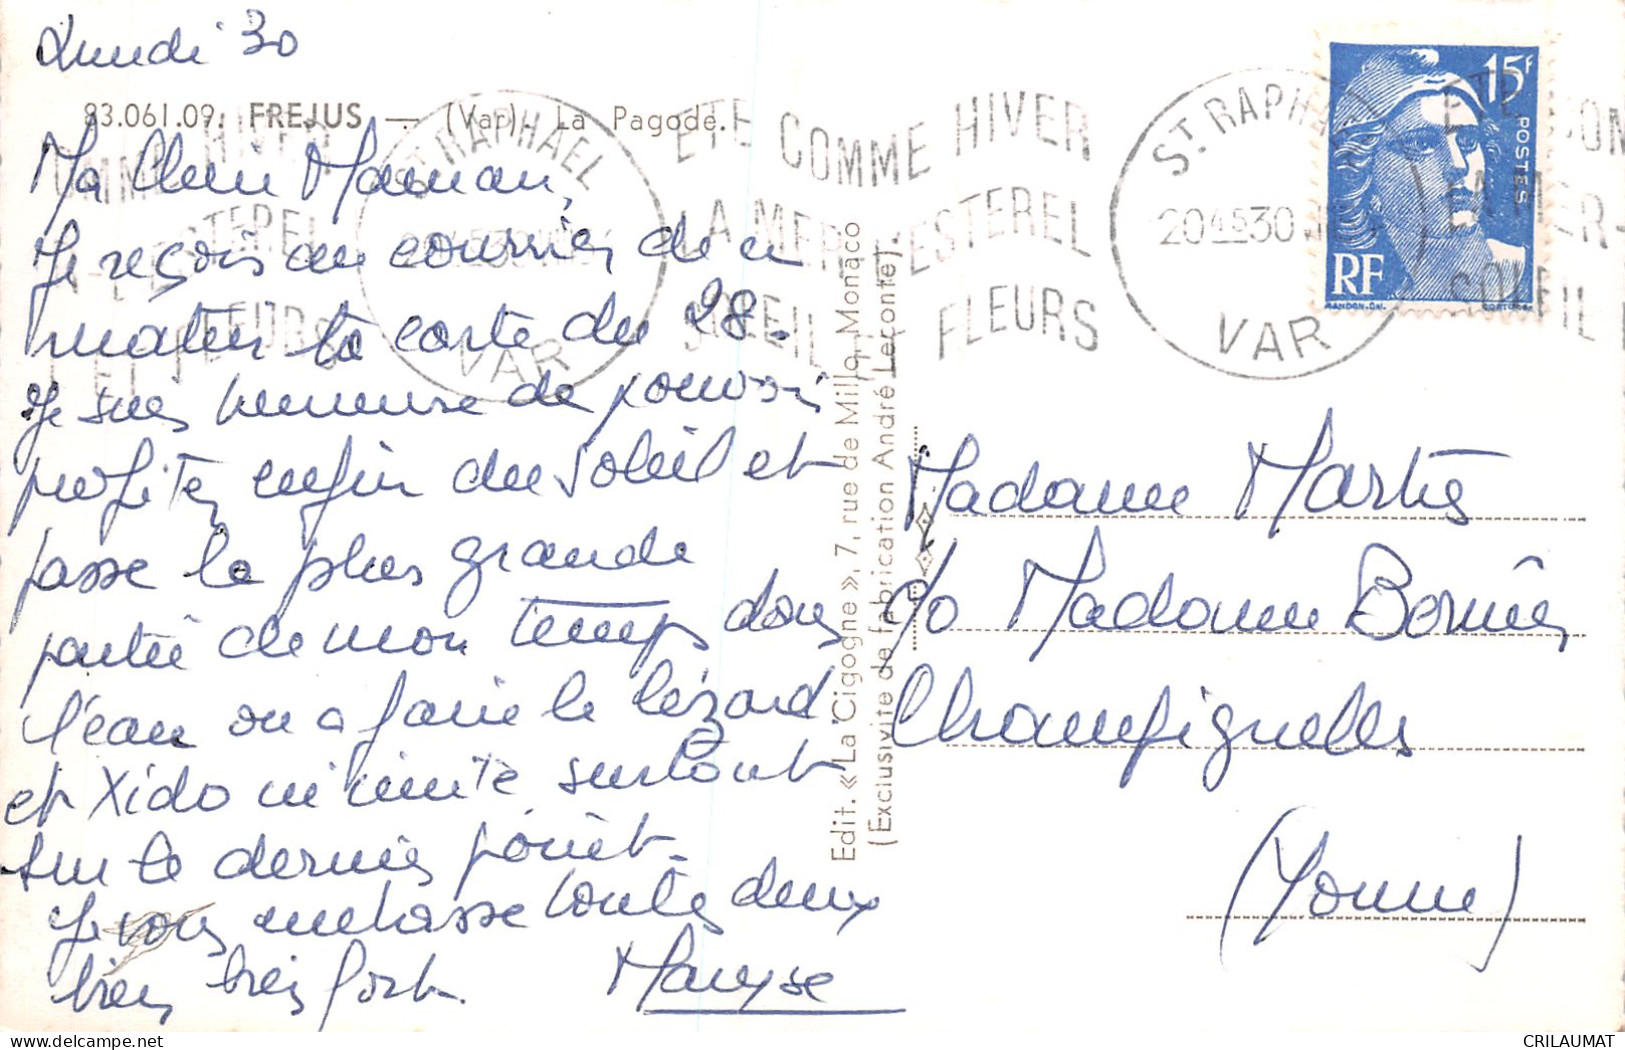 Lundi 30
83.061.09. FREJUS — (Var). La Pagode.
Ma Chère Maman,
Je reçois au courrier de ce
matin ta carte du 28.
Je suis heureuse de pouvoir
profiter enfin du soleil et
passe la plus grande
partie de mon temps dans
l'eau ou à faire le lézard
et Xido m'imite surtout
sur le dernier point.
Je vous embrasse toutes deux
bien bien fort.
Maryse
Edit. « La Cigogne », 7, rue de Millo, Monaco
(Exclusivité de fabrication André Leconte).
ST RAPHAEL
VAR
ETE COMME HIVER
LA MER L'ESTEREL
SOLEIL ET FLEURS
ST RAPHAEL
20H45 30
VAR
15F
POSTES
RF
GANDON-DEL.
Madame Martin
c/o Madame
Champignelles
(Yonne)
CRILAUMAT